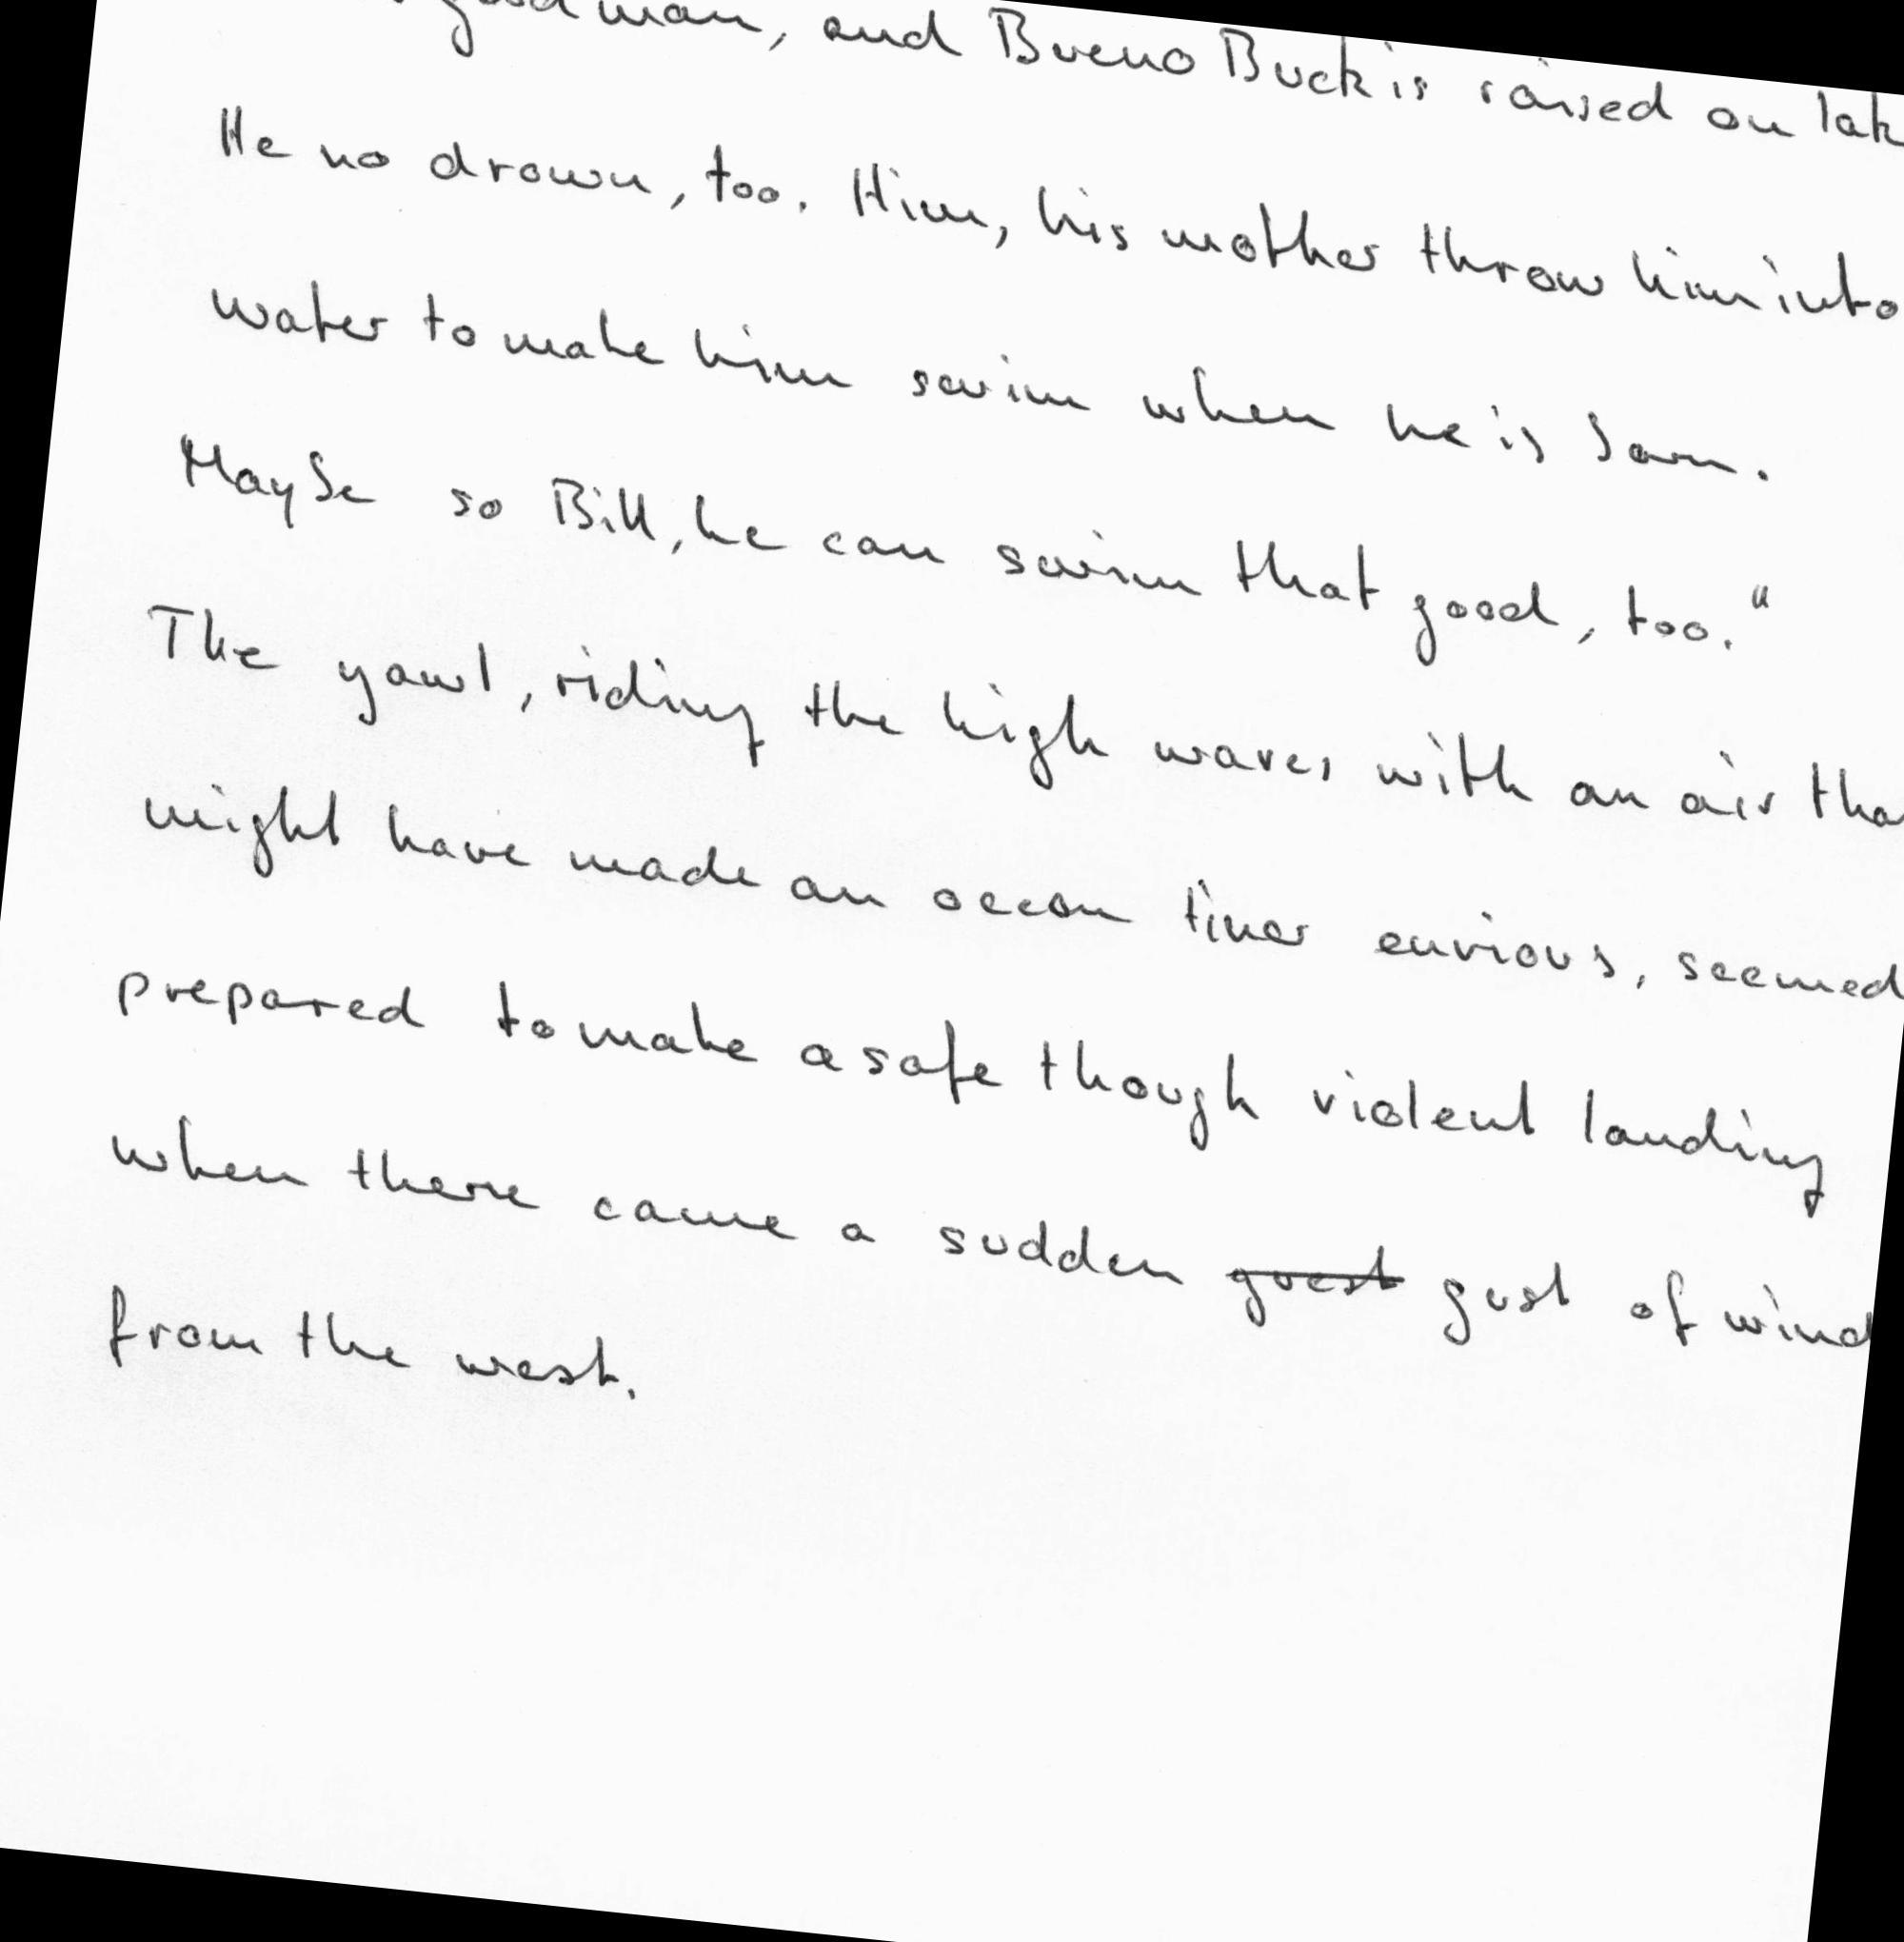 good man, and Bueno Buck is raised on lak
He no drown, too. Him, his mother throw him into
water to make him swim when he is born.
Maybe so Bill, he can swim that good, too."
The yawl, riding the high waves with an air tha
might have made an ocean liner envious, seemed
prepared to make a safe though violent landing
when there came a sudden guest gust of wind
from the west.